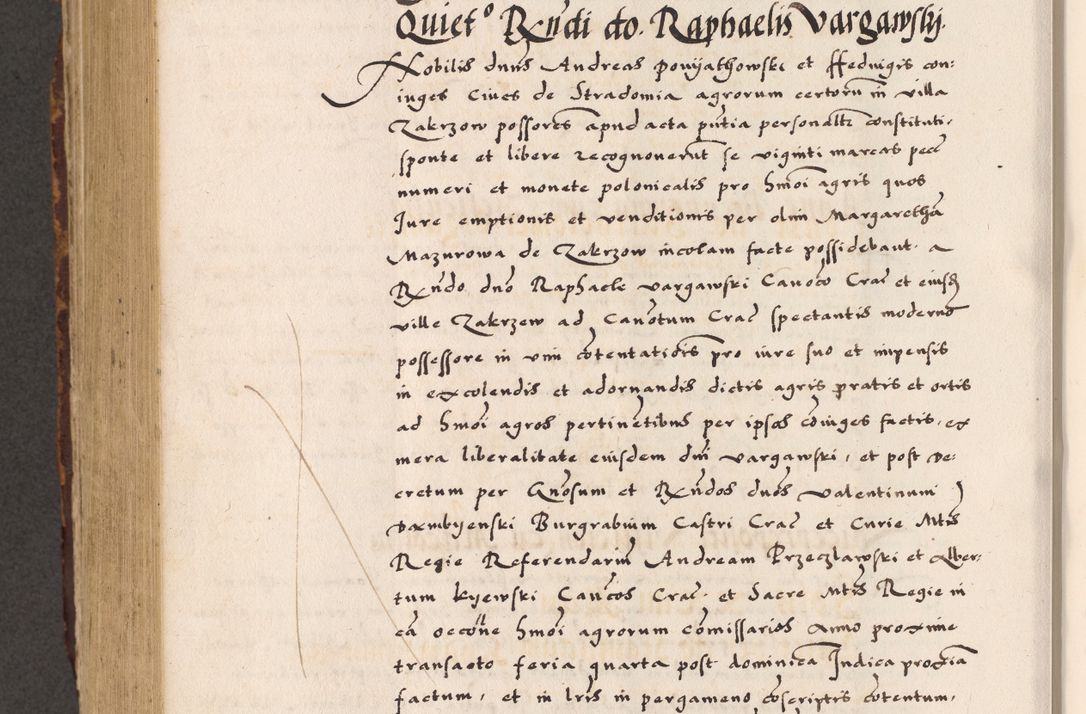 Quiet° Rndi do. Raphaelis Vargawskj.
Nobilis dnus Andreas powyathowski et Hedwigis con:
iuges Cives de Stradomia agrorum certorum in villa
Zakrzow possores apud acta pntia personaltr constituti,
sponte et libere recognoverunt se viginti marcas pecc
numeri et monete polonicalis pro hmoi agris quos
Jure emptionis et venditionis per olim Margaretham
Mazurowa de Zakrzow incolam facte possidebant. a
Rndo dno Raphaele vargawski Canoco Crac et eiusd
ville Zakrzew ad Canotum Crac spectantis moderno
possessore in vim cotentationis pro iure suo et impensis
in excolendis et adornandis dictis agris pratis et ortis
ad hmoi agros pertinetibus per ipsos coiuges factis, ex
mera liberalitate eiusdem dni vargawski, et post de:
cretum per Gnosum et Rndos dnos valentinum
Dembyenski Burgrabium Castri Crac et Curie Mtis
Regie Referendarium Andream Przeczlawski et Alber:
tum kyewski Canocos Crac. et Sacre Mtis Regie in
ea occone hmoi agrorum comissarios Anno proxime
transacto feria quarta post dominica Iudica proxia
factum, et in lris in pergameno coscriptis cotentum,